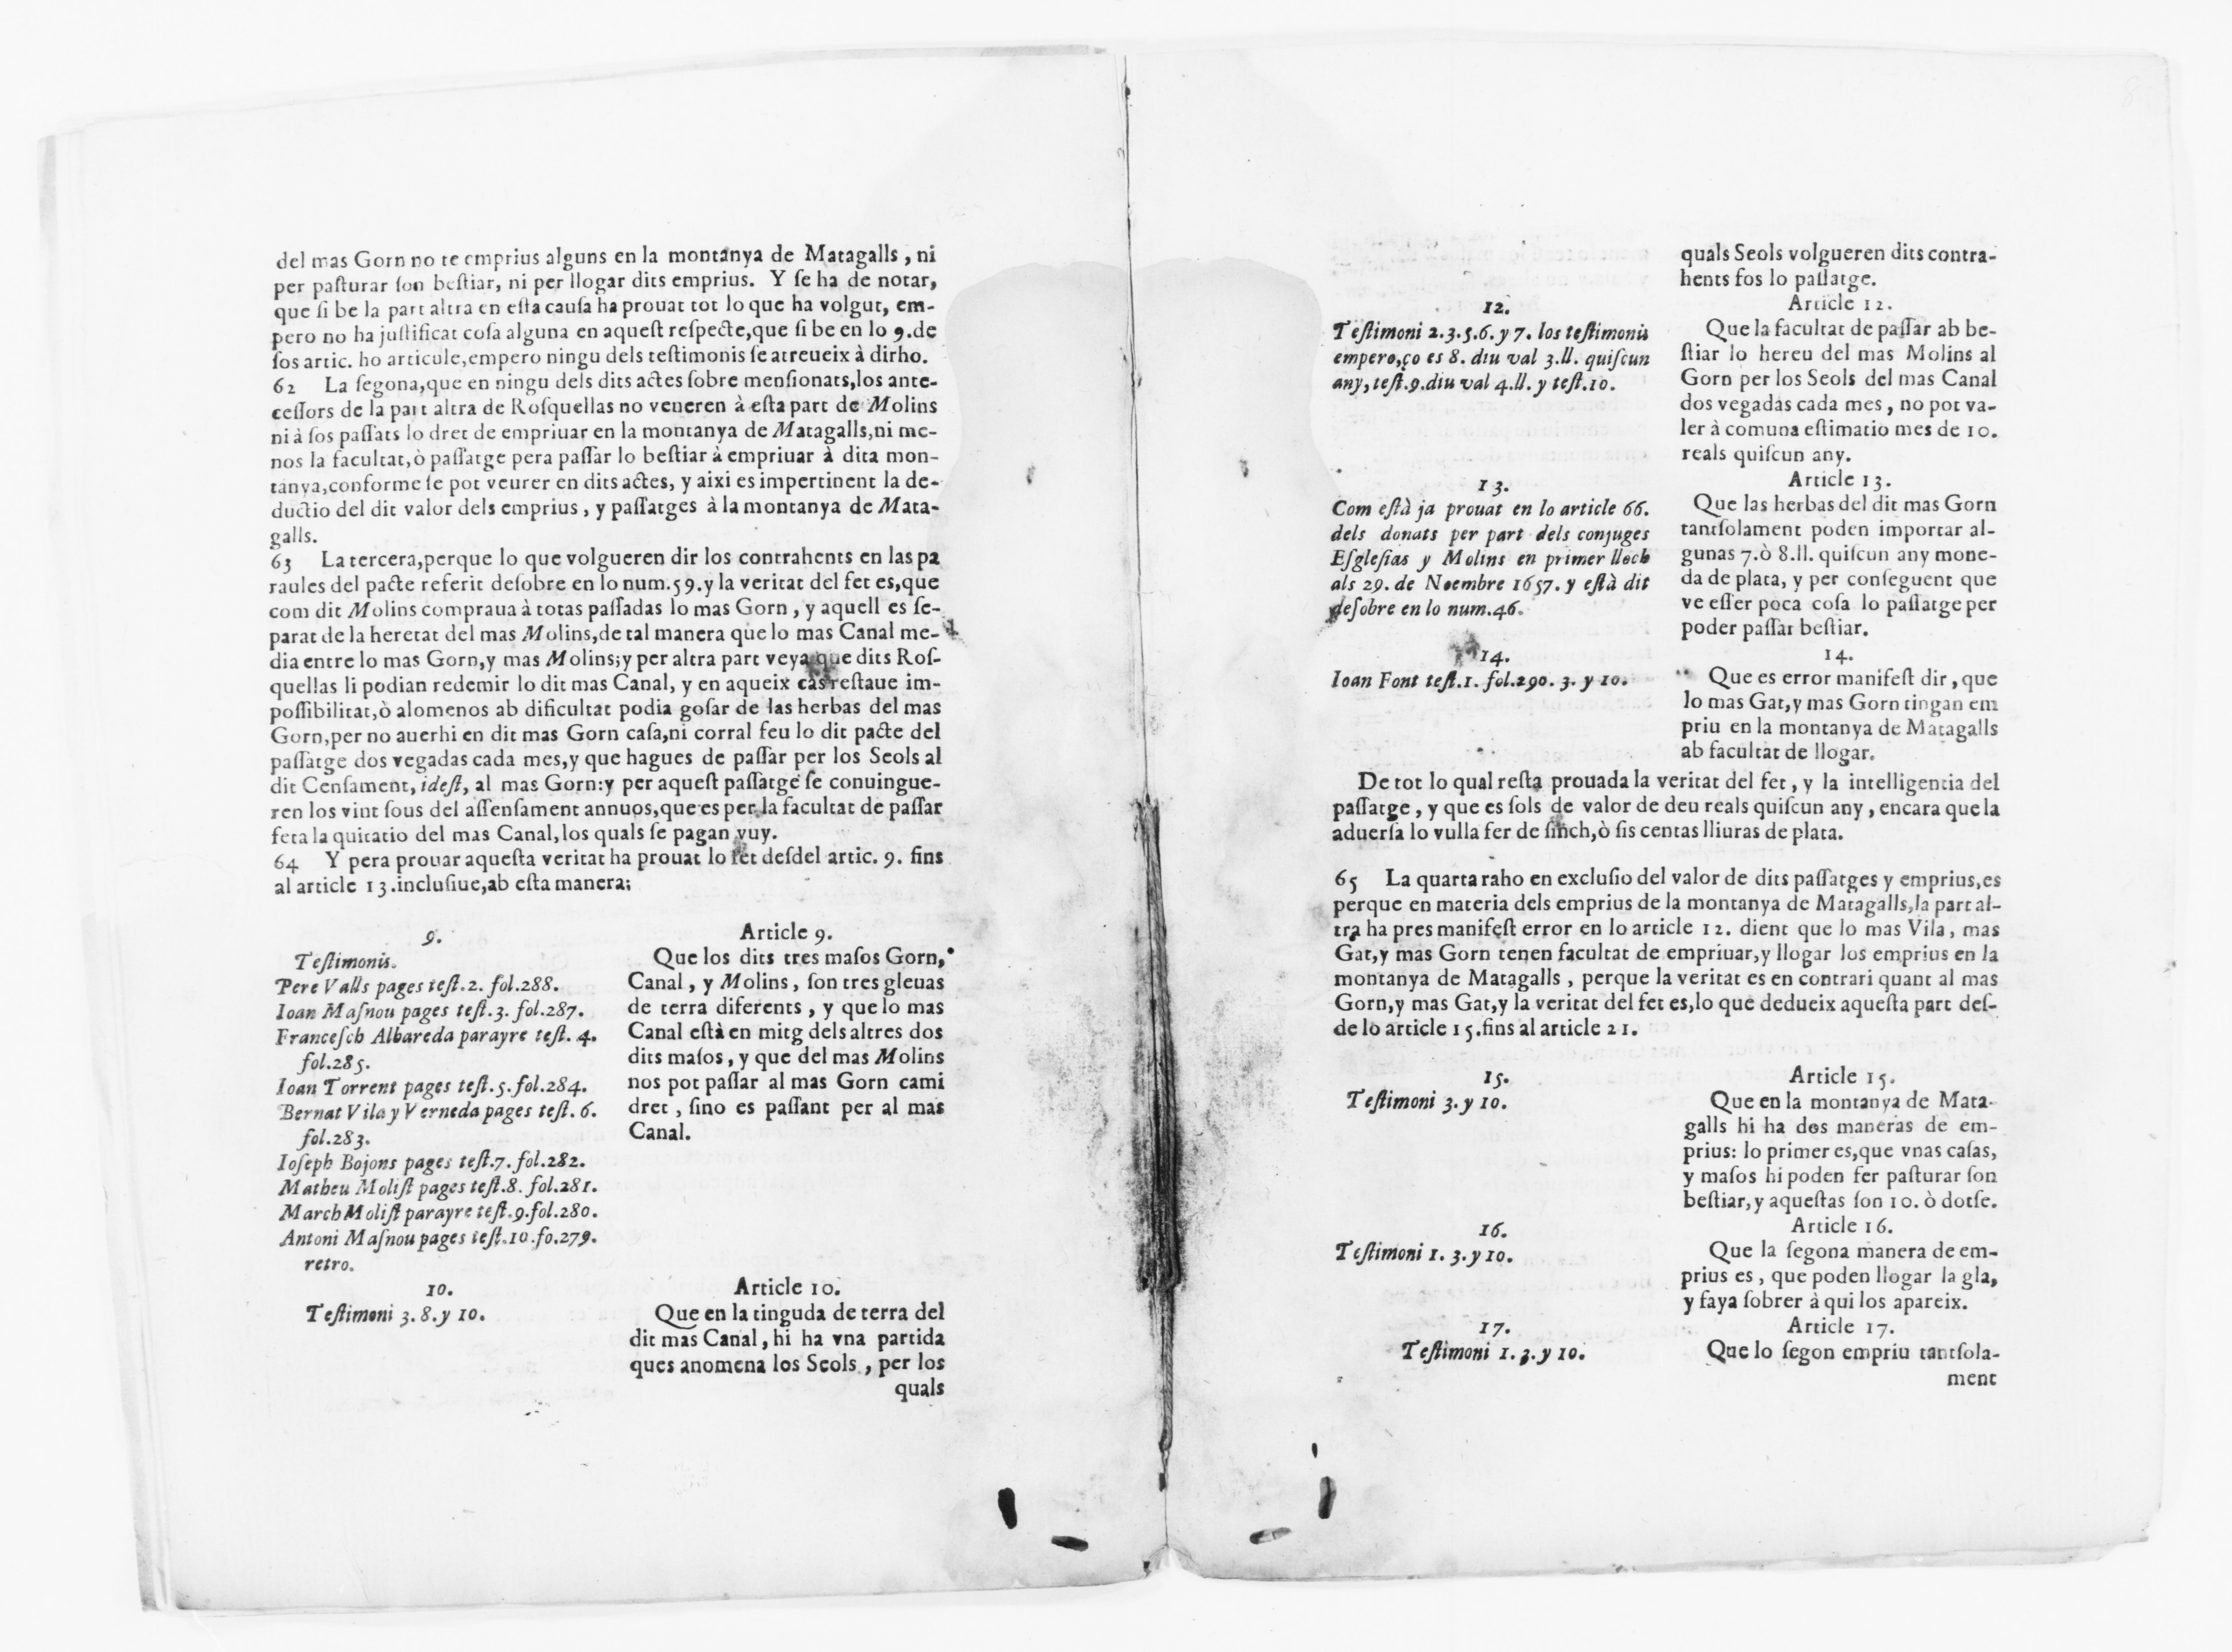 del mas Gorn no te emprius alguns en la montanya de Matagalls , ni
per paſturar ſon beſtiar, ni per llogar dits emprius. Y ſe ha de notar,
que ſi be la part altra en eſta cauſa ha prouat tot lo que ha volgut, em-
pero no ha juſtificat coſa alguna en aqueſt reſpecte,que ſi be en lo 9.de
ſos artic. ho articule,empero ningu dels teſtimonis ſe atreueix à dirho.
62 La ſegona,que en ningu dels dits actes ſobre menſionats,los ante-
ceſſors de la part altra de Roſquellas no veneren à eſta part de Molins
ni à ſos paſſats lo dret de empriuar en la montanya de Matagalls,ni me-
nos la facultat,ò paſſatge pera paſſar lo beſtiar à empriuar à dita mon-
tanya,conforme ſe pot veurer en dits actes, y aixi es impertinent la de-
ductio del dit valor dels emprius , y paſſatges à la montanya de Mata-
galls.
63 La tercera,perque lo que volgueren dir los contrahents en las pa
raules del pacte referit deſobre en lo num.59.y la veritat del fet es,que
com dit Molins compraua à totas paſſadas lo mas Gorn , y aquell es ſe-
parat de la heretat del mas Molins,de tal manera que lo mas Canal me-
dia entre lo mas Gorn,y mas Molins;y per altra part veya que dits Roſ-
quellas li podian redemir lo dit mas Canal, y en aqueix cas reſtaue im-
poſſibilitat,ò alomenos ab dificultat podia goſar de las herbas del mas
Gorn,per no auerhi en dit mas Gorn caſa,ni corral feu lo dit pacte del
paſſatge dos vegadas cada mes,y que hagues de paſſar per los Seols al
dit Cenſament, ideſt, al mas Gorn:y per aqueſt paſſatge ſe conuingue-
ren los vint ſous del aſſenſament annuos,que es per la facultat de paſſar
feta la quitatio del mas Canal,los quals ſe pagan vuy.
64 Y pera prouar aqueſta veritat ha prouat lo fet deſdel artic. 9. fins
al article 13.incluſiue,ab eſta manera;
9.
Teſtimonis.
Pere Valls pages teſt.2. fol.288.
Ioan Maſnou pages teſt.3. fol.287.
Franceſch Albareda parayre teſt. 4.
fol.285.
Ioan Torrent pages teſt.5.fol.284.
Bernat Vila y Verneda pages teſt. 6.
fol.283.
Ioſeph Bojons pages teſt.7.fol.282.
Matheu Moliſt pages teſt.8. fol.281.
March Moliſt parayre teſt.9.fol.280.
Antoni Maſnou pages teſt.10.fo.279.
retro.
10.
Teſtimoni 3. 8. y 10.
Article 9.
Que los dits tres maſos Gorn,
Canal , y Molins , ſon tres gleuas
de terra diferents , y que lo mas
Canal està en mitg dels altres dos
dits maſos , y que del mas Molins
nos pot paſſar al mas Gorn cami
dret , ſino es paſſant per al mas
Canal.
Article 10.
Que en la tinguda de terra del
dit mas Canal , hi ha vna partida
ques anomena los Seols , per los
quals
12.
Teſtimoni 2.3.5.6. y 7. los teſtimonis
empero,ço es 8. diu val 3.ll. quiſcun
any, teſt.9.diu val 4.ll. y teſt.10.
13.
Com eſtà ja prouat en lo article 66.
dels donats per part dels conjuges
Eſgleſias y Molins en primer lloch
als 29. de Noembre 1657. y eſtà dit
deſobre en lo num.46.
14.
Ioan Font teſt.1. fol.290. 3. y 10.
quals Seols volgueren dits contra-
hents fos lo paſſatge.
Article 12.
Que la facultat de paſſar ab be-
ſtiar lo hereu del mas Molins al
Gorn per los Seols del mas Canal
dos vegadas cada mes , no pot va-
ler à comuna eſtimatio mes de 10.
reals quiſcun any.
Article 13.
Que las herbas del dit mas Gorn
tantſolament poden importar al-
gunas 7.ò 8.ll. quiſcun any mone-
da de plata, y per conſeguent que
ve eſſer poca coſa lo paſſatge per
poder paſſar beſtiar.
14.
Que es error manifeſt dir , que
lo mas Gat,y mas Gorn tingan em
priu en la montanya de Matagalls
ab facultat de llogar.
De tot lo qual reſta prouada la veritat del fet , y la intelligentia del
paſſatge , y que es ſols de valor de deu reals quiſcun any , encara que la
aduerſa lo vulla fer de ſinch,ò ſis centas lliuras de plata.
65 La quarta raho en excluſio del valor de dits paſſatges y emprius,es
perque en materia dels emprius de la montanya de Matagalls,la part al-
tra ha pres manifeſt error en lo article 12. dient que lo mas Vila, mas
Gat,y mas Gorn tenen facultat de empriuar,y llogar los emprius en la
montanya de Matagalls , perque la veritat es en contrari quant al mas
Gorn,y mas Gat,y la veritat del fet es,lo que dedueix aqueſta part deſ-
de lo article 15.fins al article 21.
15.
Teſtimoni 3. y 10.
16.
Teſtimoni 1. 3. y 10.
17.
Teſtimoni 1. 3. y 10.
Article 15.
Que en la montanya de Mata-
galls hi ha dos maneras de em-
prius: lo primer es,que vnas caſas,
y maſos hi poden fer paſturar ſon
beſtiar, y aqueſtas ſon 10. ò dotſe.
Article 16.
Que la ſegona manera de em-
prius es , que poden llogar la gla,
y faya ſobrer à qui los apareix.
Article 17.
Que lo ſegon empriu tantſola-
ment